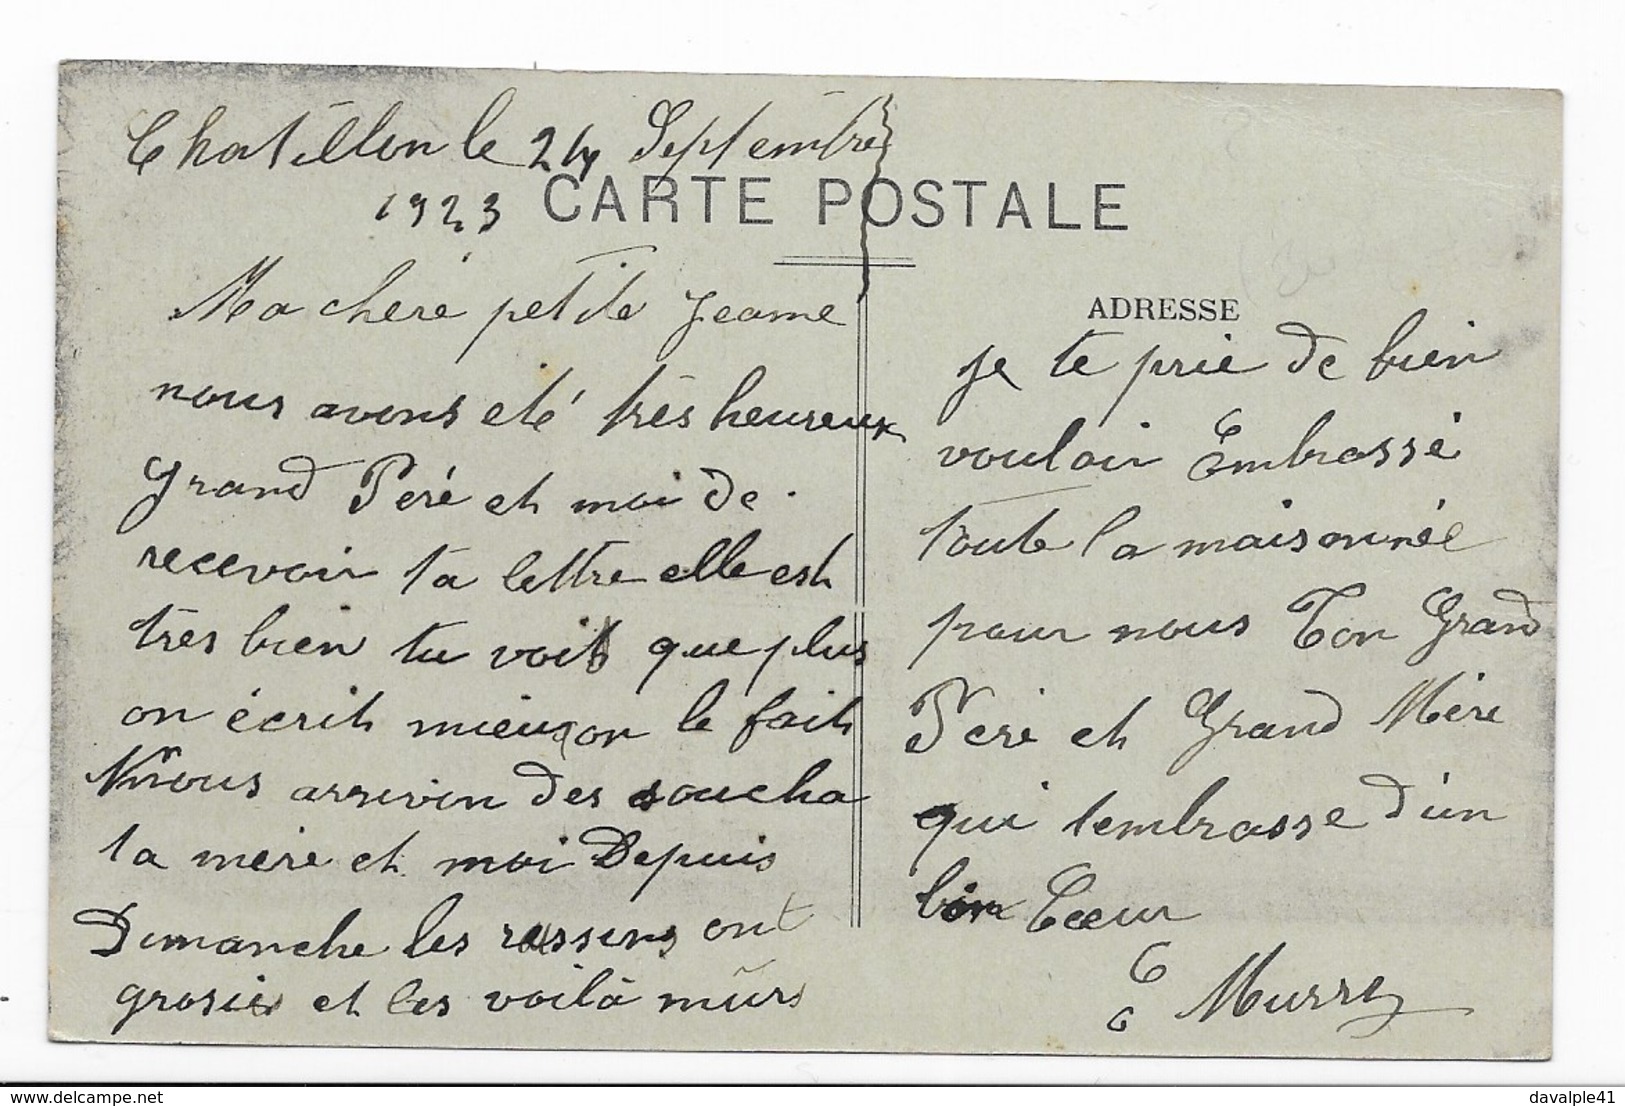 Chatillon le 24 Septembre
1923
CARTE POSTALE
Ma chere petite Jeanne
nous avons eté très heureux
grand Peré et moi de
recevoir ta lettre elle est
très bien tu voit que plus
on écrit mieux on le fait
nous arrivon des soucha
ta mère et moi Depuis
Dimanche les ressins ont
grosie et les voilà mûrs
ADRESSE
je te prie de bien
vouloir Embrassé
toute la maisonnée
pour nous Ton Grand
Peré et Grand Mère
qui tembrasse d'un
bon Coeur
E Murre
delcampe.net
davalple41